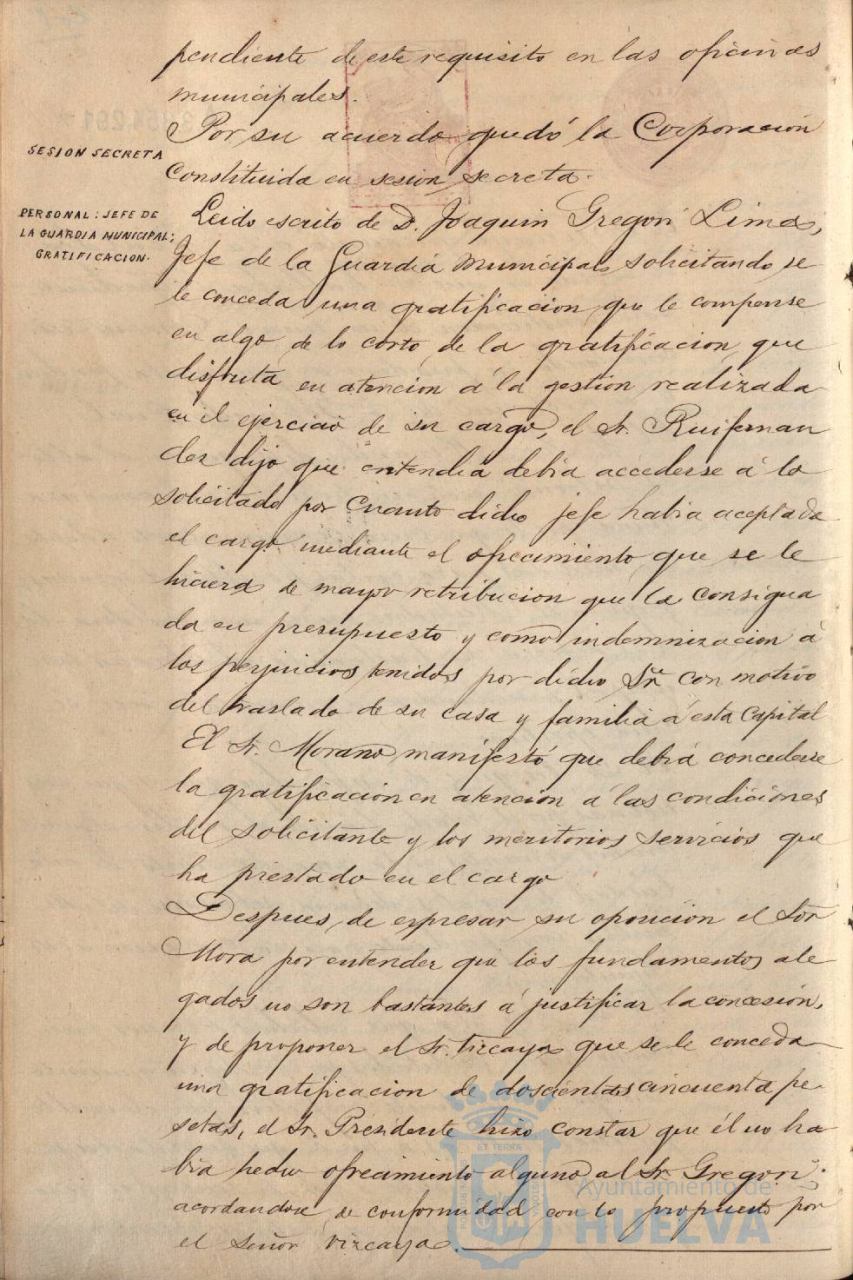 pendiente de este requisito en las oficinas
municipales.
Por su acuerdo quedó la Corporación
SESION SECRETA
Constituida en sesion secreta.
PERSONAL: JEFE DE
LA GUARDIA MUNICIPAL;
GRATIFICACION.
Leido escrito de D. Joaquin Gregori Limas,
Jefe de la Guardia Municipal solicitando se
le conceda una gratificacion que le compense
en algo de lo corto de la gratificacion que
disfruta en atencion á la gestion realizada
en el ejercicio de su cargo, el Sr. Ruifernan
dez dijo que entendia debia accederse á lo
solicitado por cuanto dicho jefe habia aceptado
el cargo mediante el ofrecimiento que se le
hiciera de mayor retribucion que la consigna
da en presupuesto y como indemnizacion á
los perjuicios tenidos por dicho Sr. con motivo
del traslado de su casa y familia á esta Capital
El Sr. Morano manifestó que debia concederse
la gratificacion en atencion á las condiciones
del solicitante y los meritorios servicios que
ha prestado en el cargo
Despues de expresar su oposicion el Sor
Mora por entender que los fundamentos ale
gados no son bastantes á justificar la concesión,
y de proponer el Sr. Vizcaya que se le conceda
una gratificacion de doscientas cincuenta pe-
setas, el Sr. Presidente hizo constar que él no ha
bia hecho ofrecimiento alguno al Sr. Gregori.
acordandose de conformidad con lo propuesto por
el Señor Vizcaya.
ET TERRA
Ayuntamiento de
HUELVA